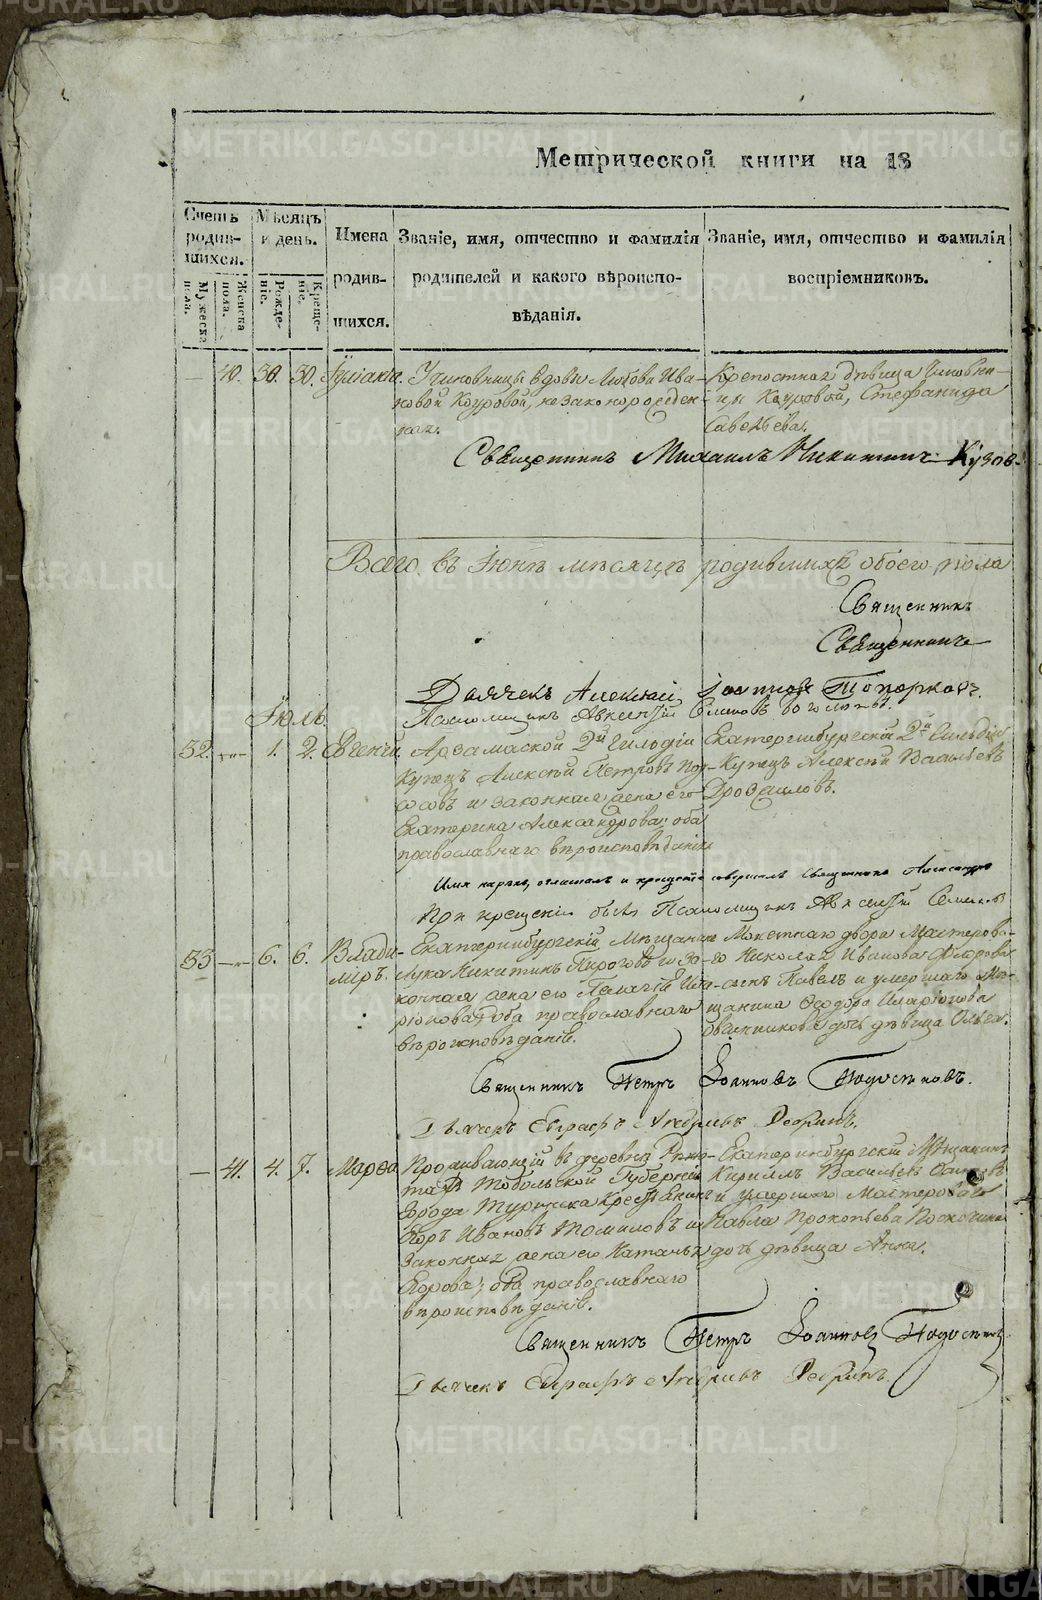 Метрической книги на 18
Счетъ родившихся.
Мѣсяцъ и день.
Имена родившихся.
Званіе, имя, отчество и фамилія родителей и какого вѣроисповѣданія.
Званіе, имя, отчество и фамилія воспріемниковъ.
Мужеска пола.
Женска пола.
Рожденіе.
Крещеніе.
40. 30. 30. Іуліанія.
Чиновницы вдовы Любови Ива-
новой Кауровой, незаконорожден-
ная.
Крепостная дѣвица Чиновни-
цы Кауровой, Стефанида
Савельева.
Священникъ Михаилъ Никитинъ
Всего въ Іюнѣ мѣсяцѣ родившихся обоего пола
Священникъ
Священникъ
Дьячекъ Алексій Топорковъ.
Псаломщикъ
Іюль.
32. 1. 2. Евгеній.
Арзамаской 2й Гильдіи
Купецъ Алексѣй Петровъ
и законная жена его
Екатерина Александрова; оба
православнаго вѣроисповѣданія
Екатеринбургскій 2й Гильдіи
Купецъ Алексѣй Васильевъ
Дрозжиловъ.
Имя нарекъ, оглашалъ и крещеніе совершалъ Священникъ Александръ
При крещеніи былъ Псаломщикъ
33 6. 6. Влади-
міръ.
Екатеринбургскій Мѣщанинъ
Лука Никитинъ Пироговъ и за-
конная жена его Пелагія
оба православнаго
вѣроисповѣданія.
Монетнаго двора Мастерова-
го Николая Иванова
сынъ Павелъ и умершаго Мѣ-
щанина Ѳеодора
Овчинникова дочь дѣвица Ольга.
Священникъ Петръ Іоанновъ Подосеновъ.
Дьячекъ Евграфъ Андреевъ Ребринъ.
41. 4. 7. Марѳа.
Проживающій въ деревнѣ
Тобольской Губерніи
Города Туринска Крестьянинъ
Егоръ Ивановъ Томиловъ и
законная жена его Наталья
Егорова; оба православнаго
вѣроисповѣданія.
Екатеринбургскій Мѣщанинъ
Кириллъ Васильевъ
и умершаго Мастероваго
Павла Прокопьева
дочь дѣвица Анна.
Священникъ Петръ Іоанновъ Подосеновъ
Дьячекъ Евграфъ Андреевъ Ребринъ.
METRIKI.GASO-URAL.RU